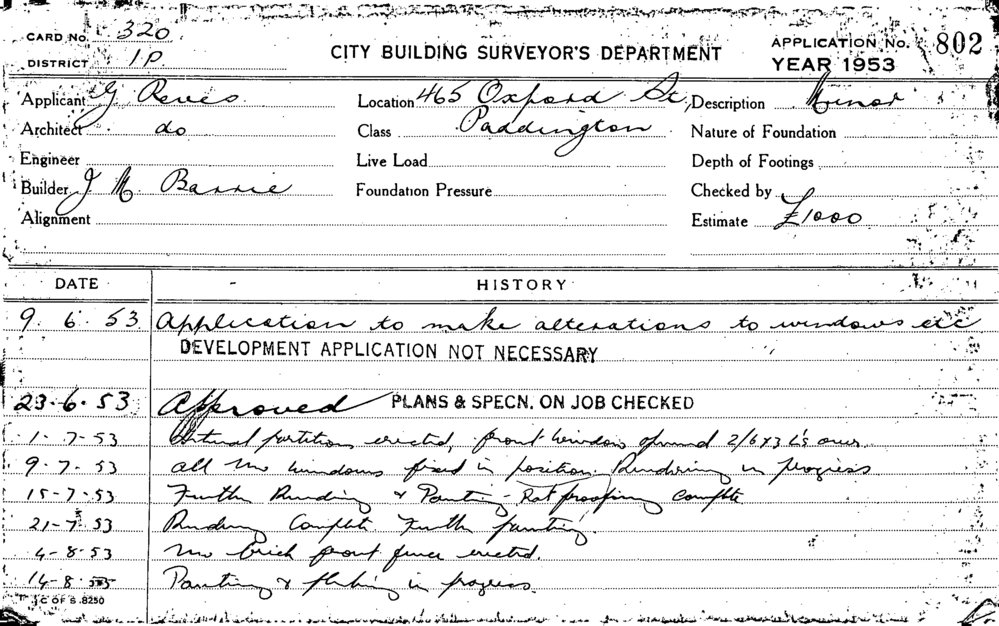 CARD No. 320
DISTRICT 1P
CITY BUILDING SURVEYOR'S DEPARTMENT
APPLICATION No. 802
YEAR 1953
Applicant G Reves Location 465 Oxford St, Description Minor
Architect do Class Paddington Nature of Foundation
Engineer Live Load Depth of Footings
Builder J M Barrie Foundation Pressure Checked by
Alignment Estimate £1000
DATE HISTORY
9. 6. 53 Application to make alterations to windows etc
DEVELOPMENT APPLICATION NOT NECESSARY
23.6.53 Approved PLANS & SPECN. ON JOB CHECKED
1-7-53 partition erected, front window 2/6x3
9-7-53 all windows fixed in position. Rendering in progress
15-7-53 Further Rendering & Painting - Rat proofing complete
21-7-53 Rendering Complete Further painting
4-8-53 brick front fence erected.
14-8-53 Painting & in progress.
J C OF S .8250